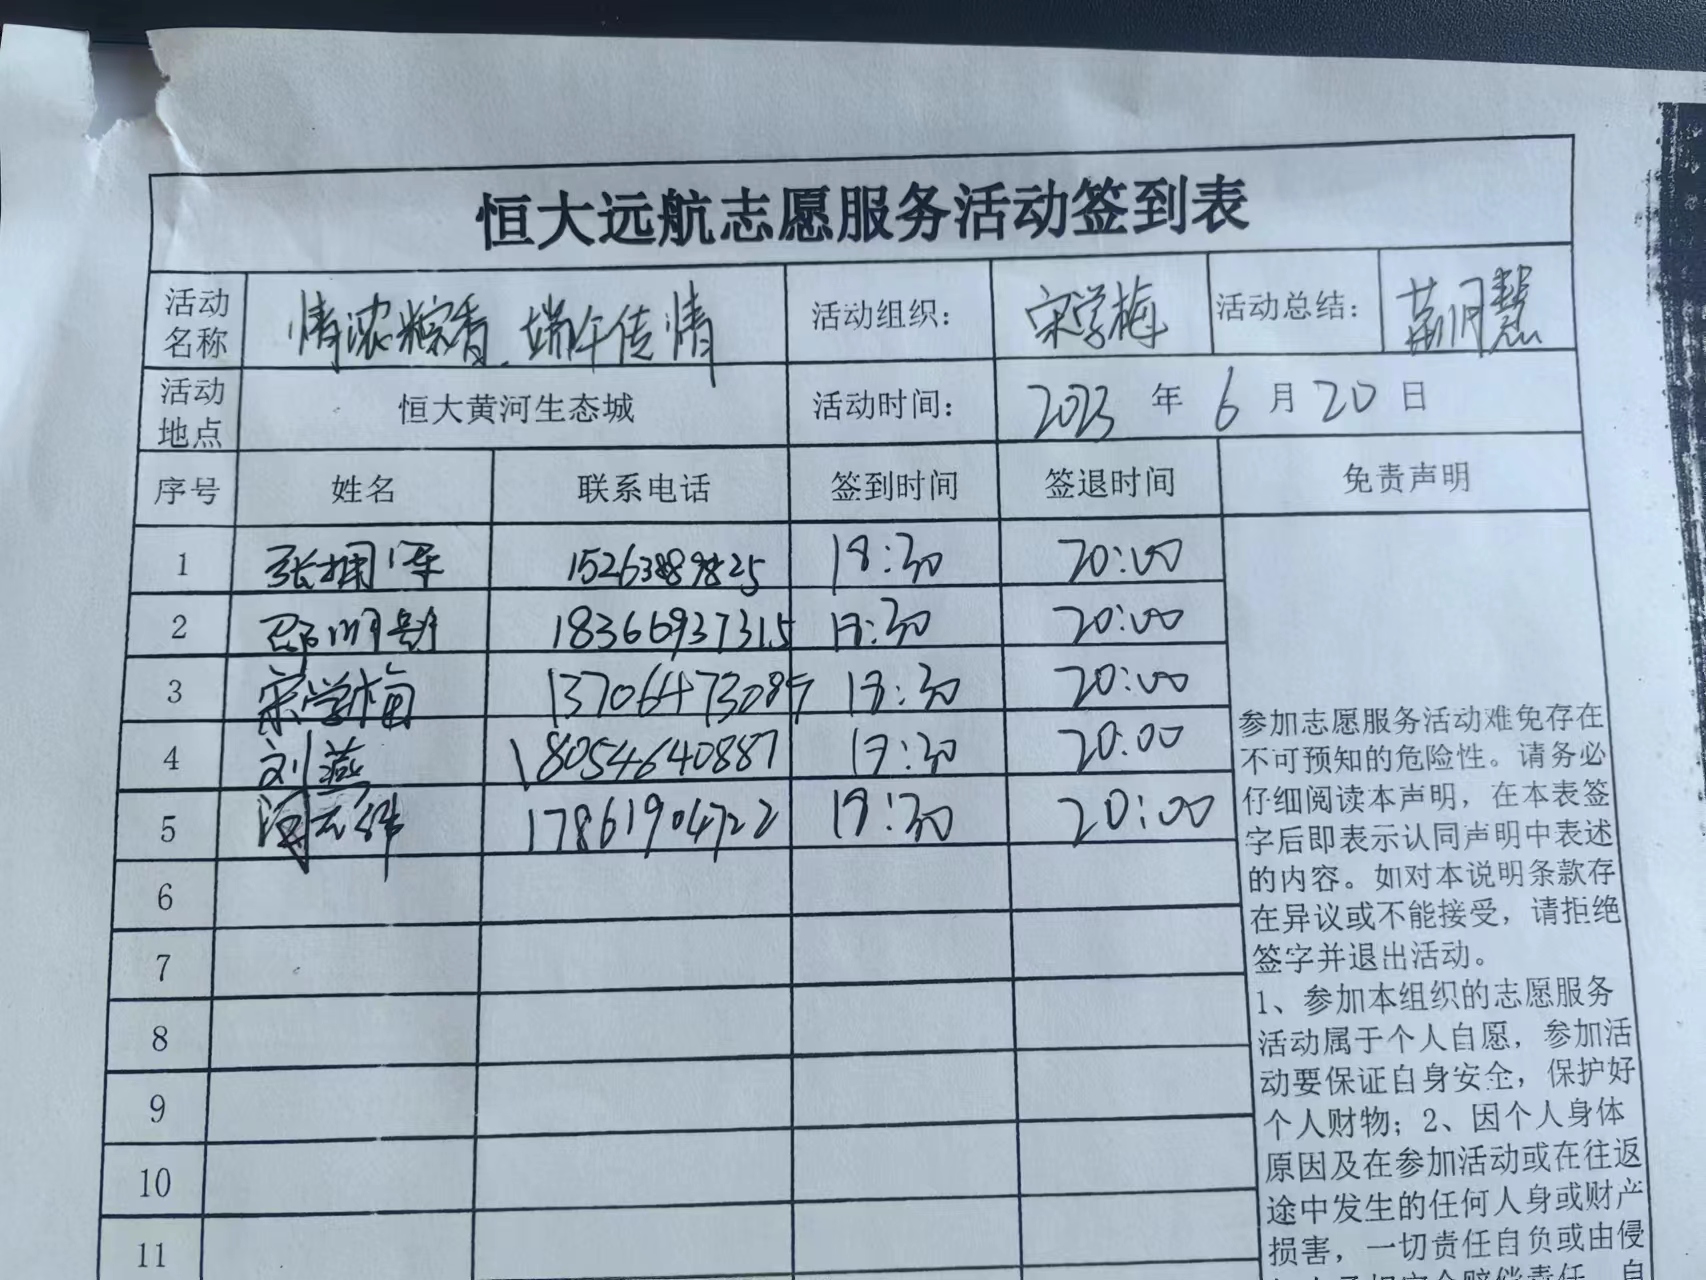 恒大远航志愿服务活动签到表
活动名称 情浓粽香、端午传情 活动组织： 宋学梅 活动总结： 慧
活动地点 恒大黄河生态城 活动时间： 2023 年 6 月 20 日
序号 姓名 联系电话 签到时间 签退时间 免责声明
1 张 20:00
2 18366937315 20:00
3 宋学梅 20:00
4 刘燕 18054640887 20:00
5 17861904722 20:00
6
7
8
9
10
11
参加志愿服务活动难免存在
不可预知的危险性。请务必
仔细阅读本声明，在本表签
字后即表示认同声明中表述
的内容。如对本说明条款存
在异议或不能接受，请拒绝
签字并退出活动。
1、参加本组织的志愿服务
活动属于个人自愿，参加活
动要保证自身安全，保护好
个人财物；2、因个人身体
原因及在参加活动或在往返
途中发生的任何人身或财产
损害，一切责任自负或由侵